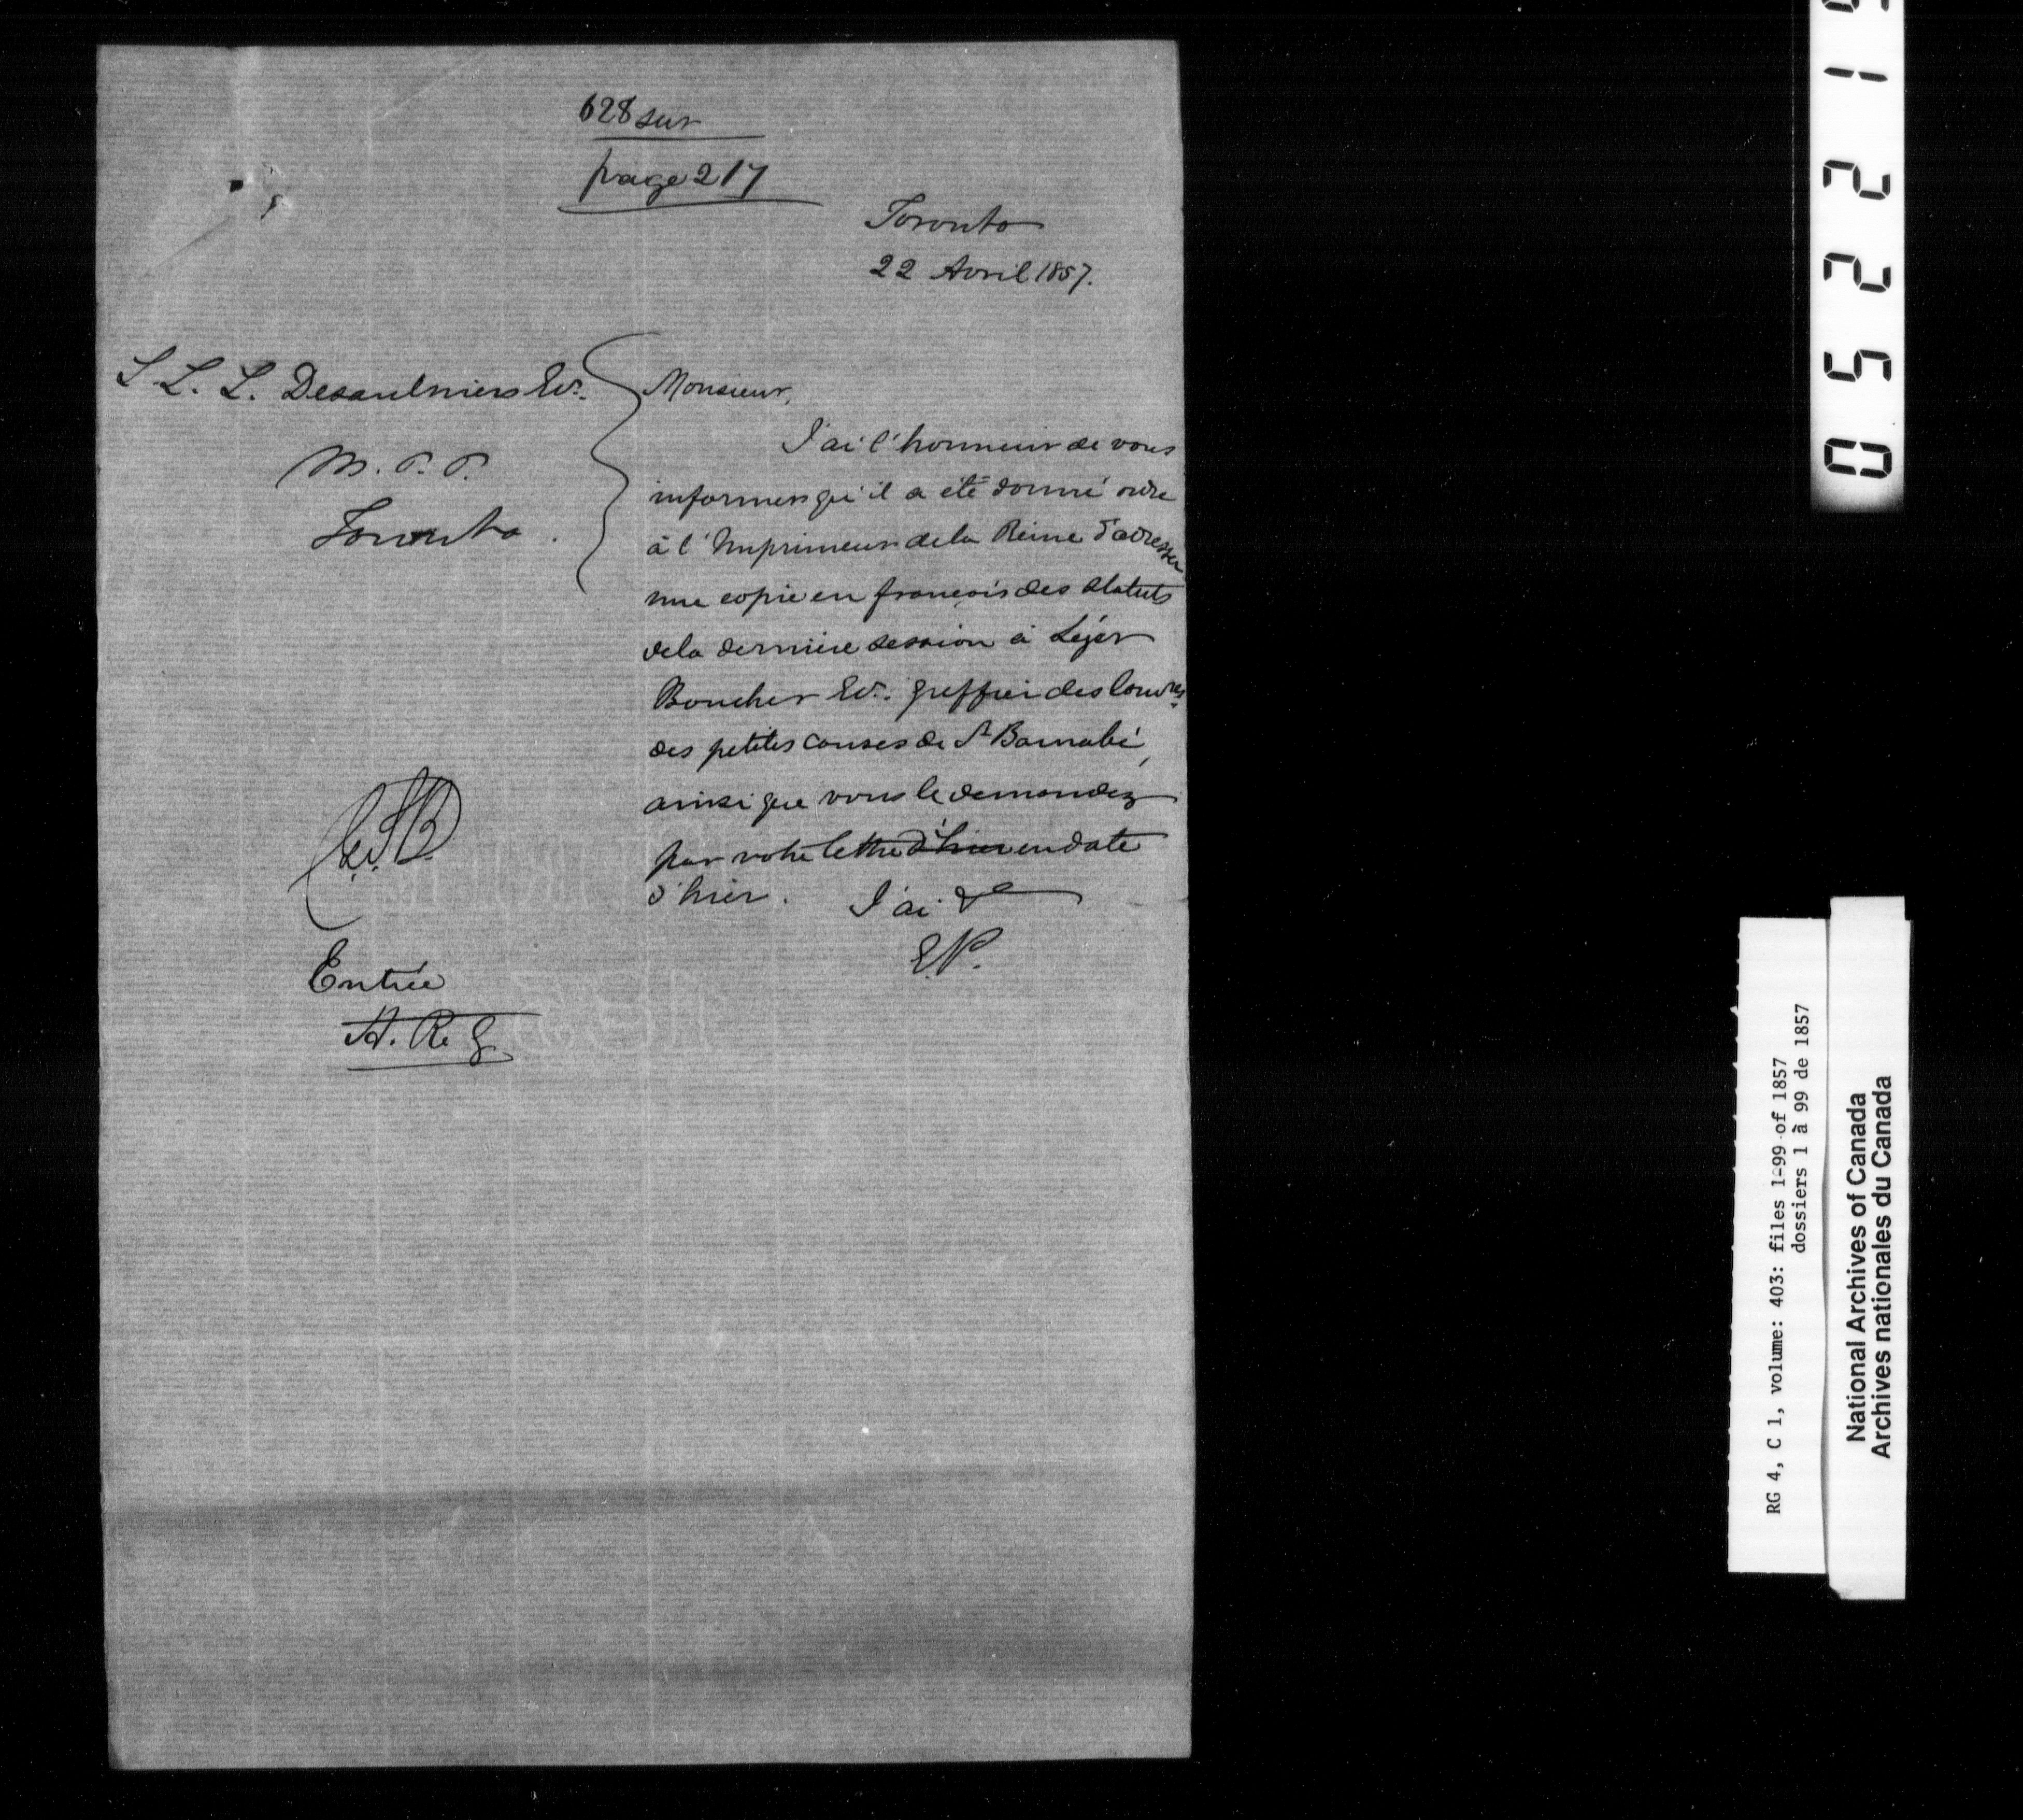 628 sur
page 217
Toronto
22 Avril 1857.
L. L. L. Desaulniers Ecr.
M. P. P.
Toronto.
Monsieur,
J'ai l'honneur de vous
informer qu'il a été donné ordre
à l'Imprimeur de la Reine d'adresser
une copie en françois des statuts
de la dernière session à Léger
Boucher Ecr. greffier des Cours
des petites causes de St Barnabé,
ainsi que vous le demandez
par votre lettre d'hier en date
d'hier. J'ai &
E.P.
Entrée
A. R. G.
05221
RG 4, C 1, volume: 403: files 1-99 of 1857
dossiers 1 à 99 de 1857
National Archives of Canada
Archives nationales du Canada